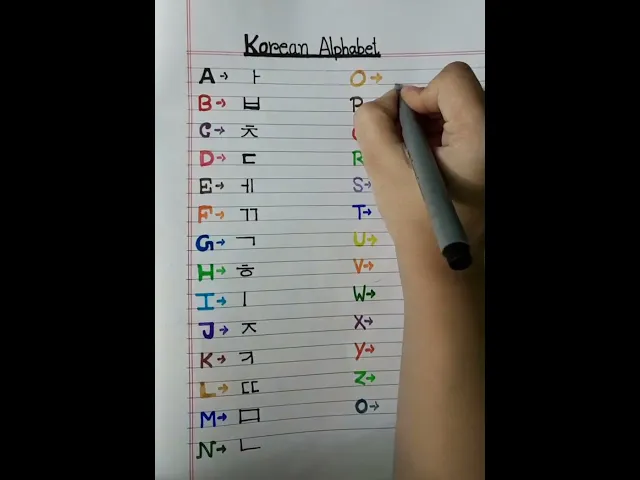 Korean Alphabet
A → ㅏ
B → ㅂ
C → ㅊ
D → ㄷ
E → ㅔ
F → ㄲ
G → ㄱ
H → ㅎ
I → ㅣ
J → ㅈ
K → ㅋ
L → ㄸ
M → ㅁ
N → ㄴ
O →
P
R
S →
T →
U →
V →
W →
X →
Y →
Z →
O →